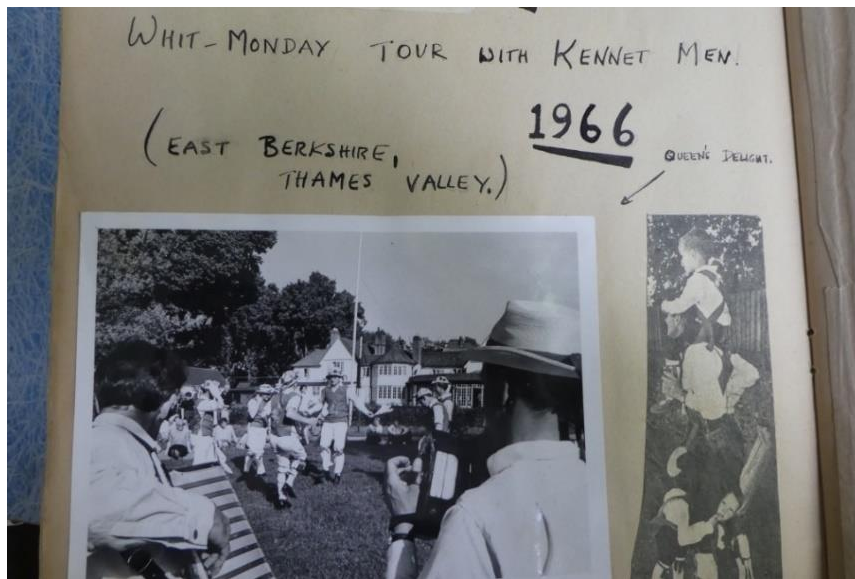 WHIT-MONDAY TOUR WITH KENNET MEN.
1966
(EAST BERKSHIRE,
THAMES VALLEY.)
QUEEN'S DELIGHT.